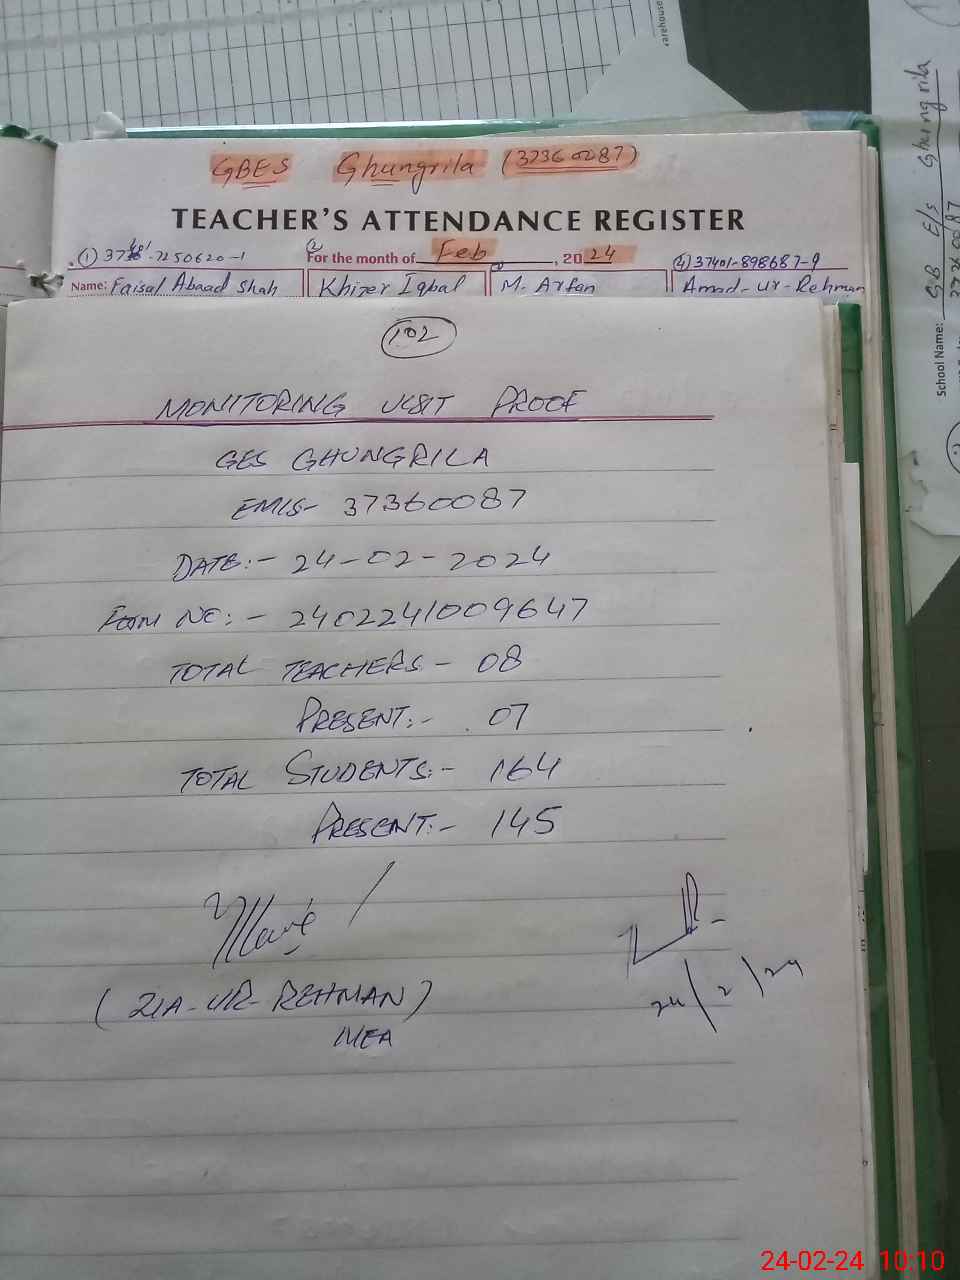 warehouse
GBES Ghungrila (37360287)
TEACHER'S ATTENDANCE REGISTER
For the month of Feb, 2024
(4) 37401-898687-9
Name: Faisal Abaad Shah
Khizer Iqbal
M. Arfan
Amad-ur-Rehman
102
MONITORING VISIT PROOF
GES GHUNGRILA
EMIS- 37360087
DATE:- 24-02-2024
Form NO:- 2402241009647
TOTAL TEACHERS- 08
PRESENT:- 07
TOTAL STUDENTS:- 164
PRESENT:- 145
24/2/24
(ZIA-UR-REHMAN)
MEA
School Name: GB E/s Ghungrila
24-02-24 10:10